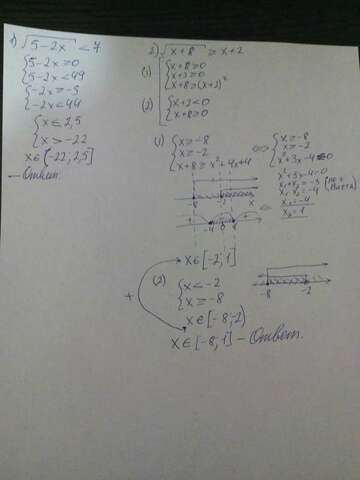 1) √5-2x < 7
{5-2x ≥ 0
5-2x < 49
{-2x ≥ -5
-2x < 44
{x ≤ 2,5
x > -22
x ∈ (-22; 2,5]
— Ответ.
2) √x+8 ≥ x+2
(1) {x+8 ≥ 0
x+2 ≥ 0
x+8 ≥ (x+2)²
(2) {x+2 < 0
x+8 ≥ 0
(1) {x ≥ -8
x ≥ -2
x+8 ≥ x²+4x+4
⇔ {x ≥ -8
x ≥ -2
x²+3x-4 ≤ 0
x²+3x-4=0
x₁+x₂=-3 (по т.
x₁·x₂=-4 Виета)
x₁=-4
x₂=1
-8 -2 x
+ -4 - 1 +
x ∈ [-2; 1]
+
(2) {x < -2
x ≥ -8
-8 -2
x ∈ [-8; -2)
x ∈ [-8; 1] — Ответ.